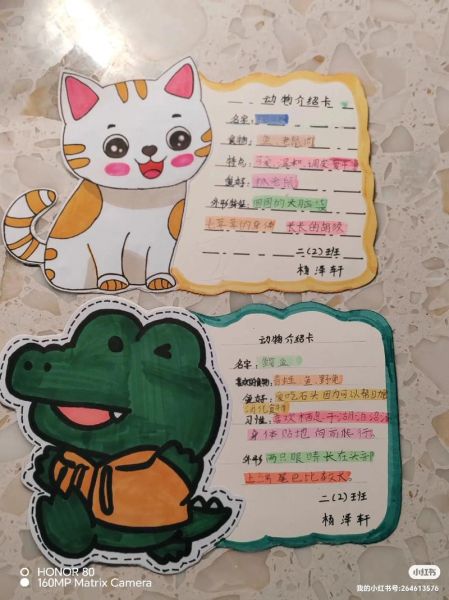 动物介绍卡
名字:
食物: 鱼、老鼠
特点: 可爱、温和、调皮
爱好: 抓老鼠
外形特征: 圆圆的大脑袋
毛茸茸的身体 长长的胡须
二(2)班
杨泽轩
动物介绍卡
名字: 鳄鱼
喜欢的食物: 鱼、野兔
爱好: 爱吃石头因为可以帮助
消化食物
习性: 喜欢栖息于湖泊沼泽
身体贴地 向前爬行。
外形 两只眼睛长在头部
上方 尾巴比较大
二(2)班
杨泽轩
HONOR 80
160MP Matrix Camera
小红书
我的小红书号:264613576